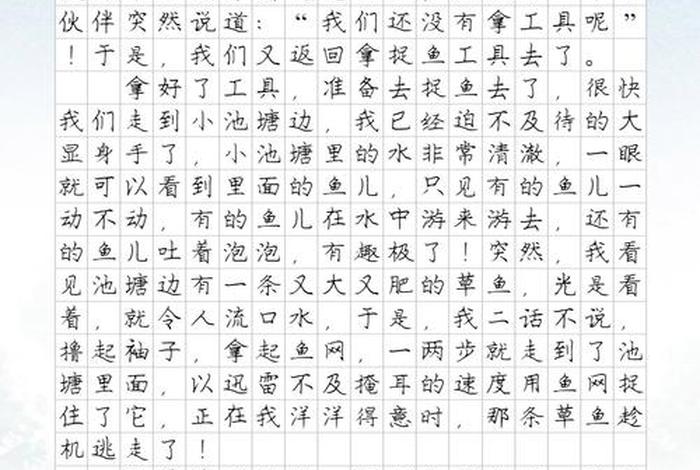 伙伴突然说道：“我们还没有拿工具呢”
！于是，我们又返回拿捉鱼工具去了。
拿好了工具，准备去捉鱼去了，很快
我们走到小池塘边，我已经迫不及待的大
显身手了，小池塘里的水非常清澈，一眼
就可以看到里面的鱼儿，只见有的鱼儿一
动不动，有的鱼儿在水中游来游去，还有
的鱼儿吐着泡泡，有趣极了！突然，我看
见池塘边有一条又大又肥的草鱼，光是看
着，就令人流口水，于是，我二话不说，
撸起袖子，拿起鱼网，一两步就走到了池
塘里面，以迅雷不及掩耳的速度用鱼网捉
住了它，正在我洋洋得意时，那条草鱼趁
机逃走了！